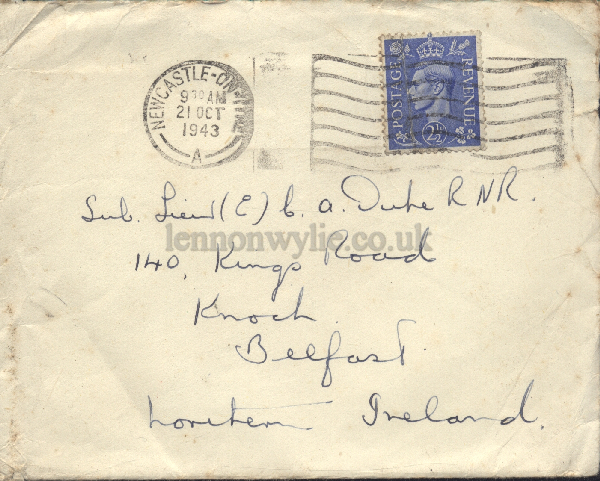 NEWCASTLE-ON-TYNE
9 30 AM
21 OCT
1943
A
POSTAGE
REVENUE
2½D
Sub. Lieut (E) C. A. Duke R.N.R.
lennonwylie.co.uk
140, Kings Road
Knock
Belfast.
Northern Ireland.